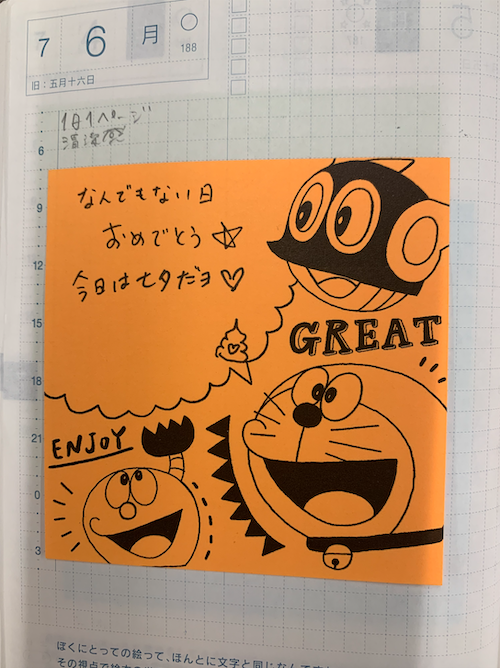 7 6 月 ○
188
旧：五月十六日
1日1ページ
6
9
12
15
18
21
0
3
なんでもない日
おめでとう☆
今日は七夕だヨ♡
GREAT
ENJOY
ぼくにとっての絵って、ほんとに文字と同じなんで